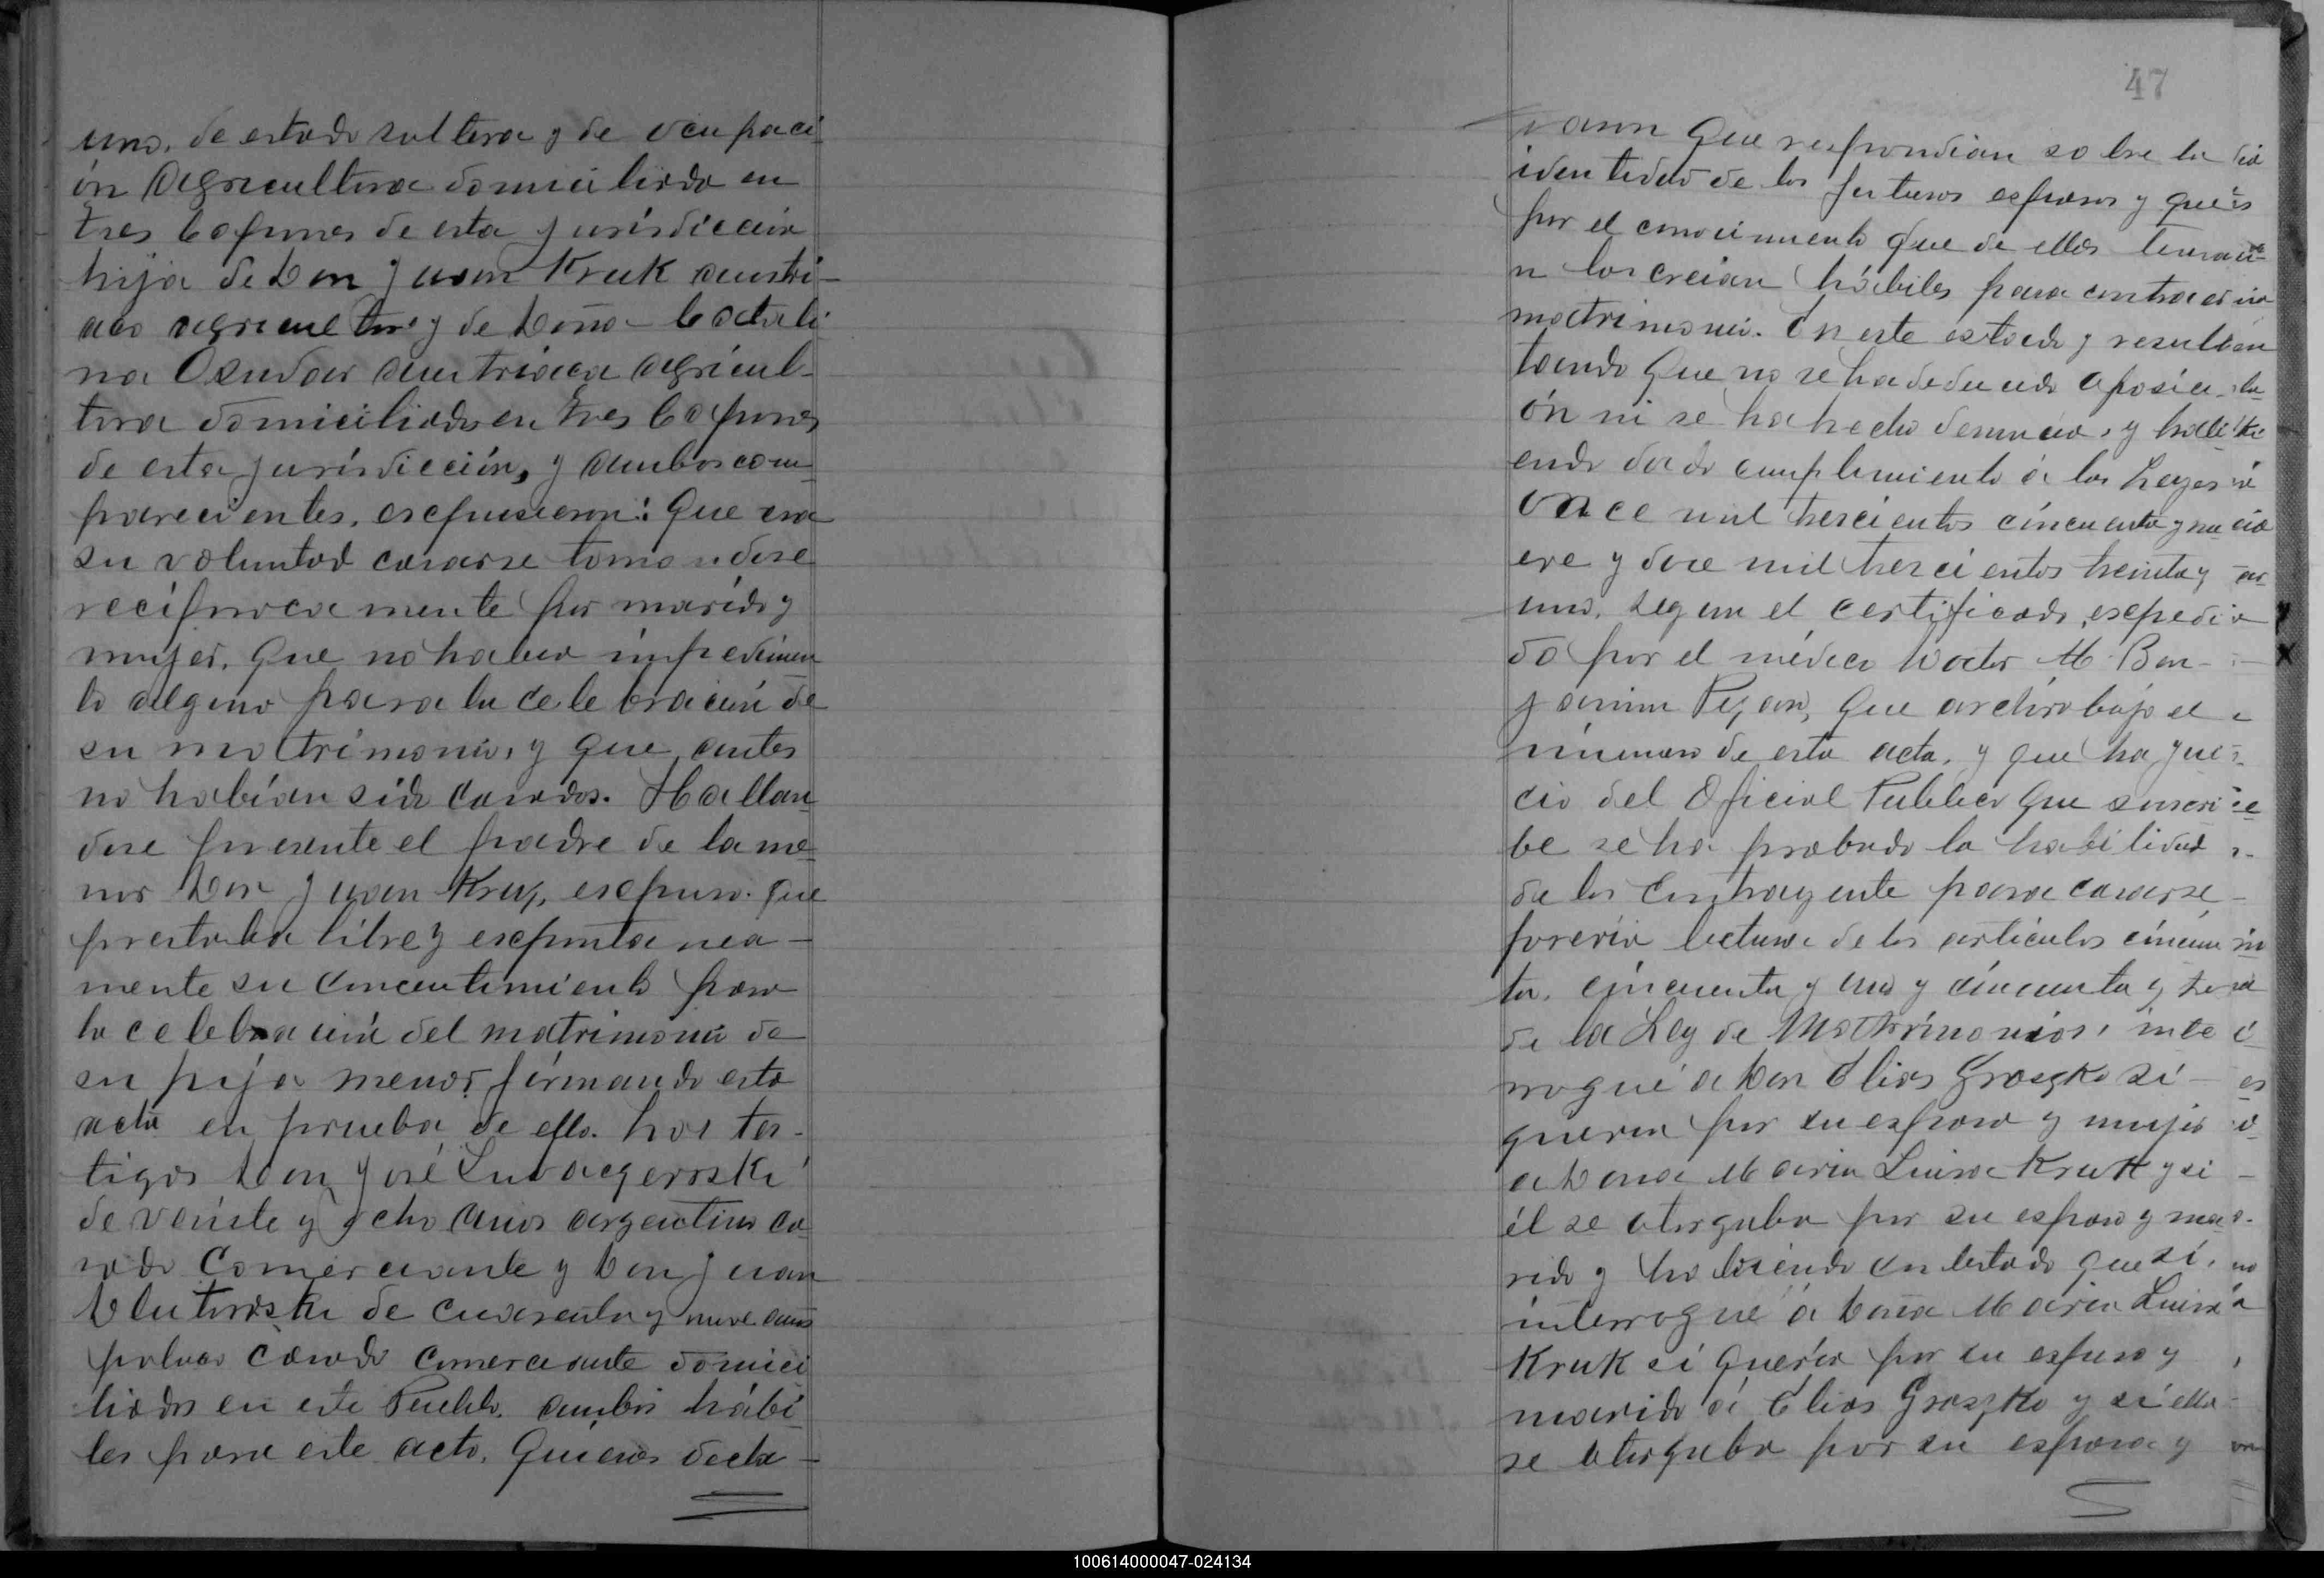 uno. de estado soltera y de ocupaci
ón Agricultora domiciliada en
tres Capones de esta jurisdicción
hija de Don Juan Kruk austri-
aco agricultor y de Doña Catali
na Osudar austriaca agricul-
tora domiciliados en tres Capones
de esta jurisdicción, y ambos com
parecientes, escpusieron: Que era
su voluntad casarse tomandose
recíprocamente por marido y
mujer. Que no habia impedimen
to alguno para la celebración de
su matrimonio, y que antes
no habían sido casados. Hallan
dose presente el padre de la me
nor Don Juan Kruk, escpuso. que
prestaba libre y escpontanea-
mente su concentimiento para
la celebración del matrimonio de
su hija menor firmando esta
acta en prueba de ello. Los tes-
tigos Don José
de veinte y ocho anos argentino ca
sado Comerciante y Don Juan
de cuarenta y nueve anos
polaco casado comerciante domici
liados en este Pueblo. ambos hábi
les para este acto. Quienes decla-
47
raron Que respondian sobre la
identidad de los futuros esposos y que
por el conocimiento que de ellos tenia
n los creian hábiles para contraer
matrimonio. En este estado y resul
tando Que no se ha deducido oposici
ón ni se ha hecho denuncia, y habi
endo dado cumplimiento á las Leyes
once mil trescientos cincuenta y nu
eve y doce mil trescientos treinta y
uno. segun el certificado, escpedi
do por el médico Doctor M. Ben-
jamin que archivo bajo el
número de esta acta, y que ha jui
cio del Oficial Publico que suscri
be se ha probado la habilidad
de los Contrayente para casarse
lectura de los articulos cincuen
ta. cincuenta y uno y cincuenta y tres
de la Ley de Matrimonios, inte
rrogué a Don Elias Groszko si
queria por su esposa y mujer
a Dona Maria Luisa Kruk y si
él se otorgaba por su esposo y ma
rido y habiendo contestado que si,
interrogué á Doña Maria Luisa
Kruk si Quería por su esposo y
marido á Elias Groszko y si ella
se otorgaba por su esposa y
100614000047-024134